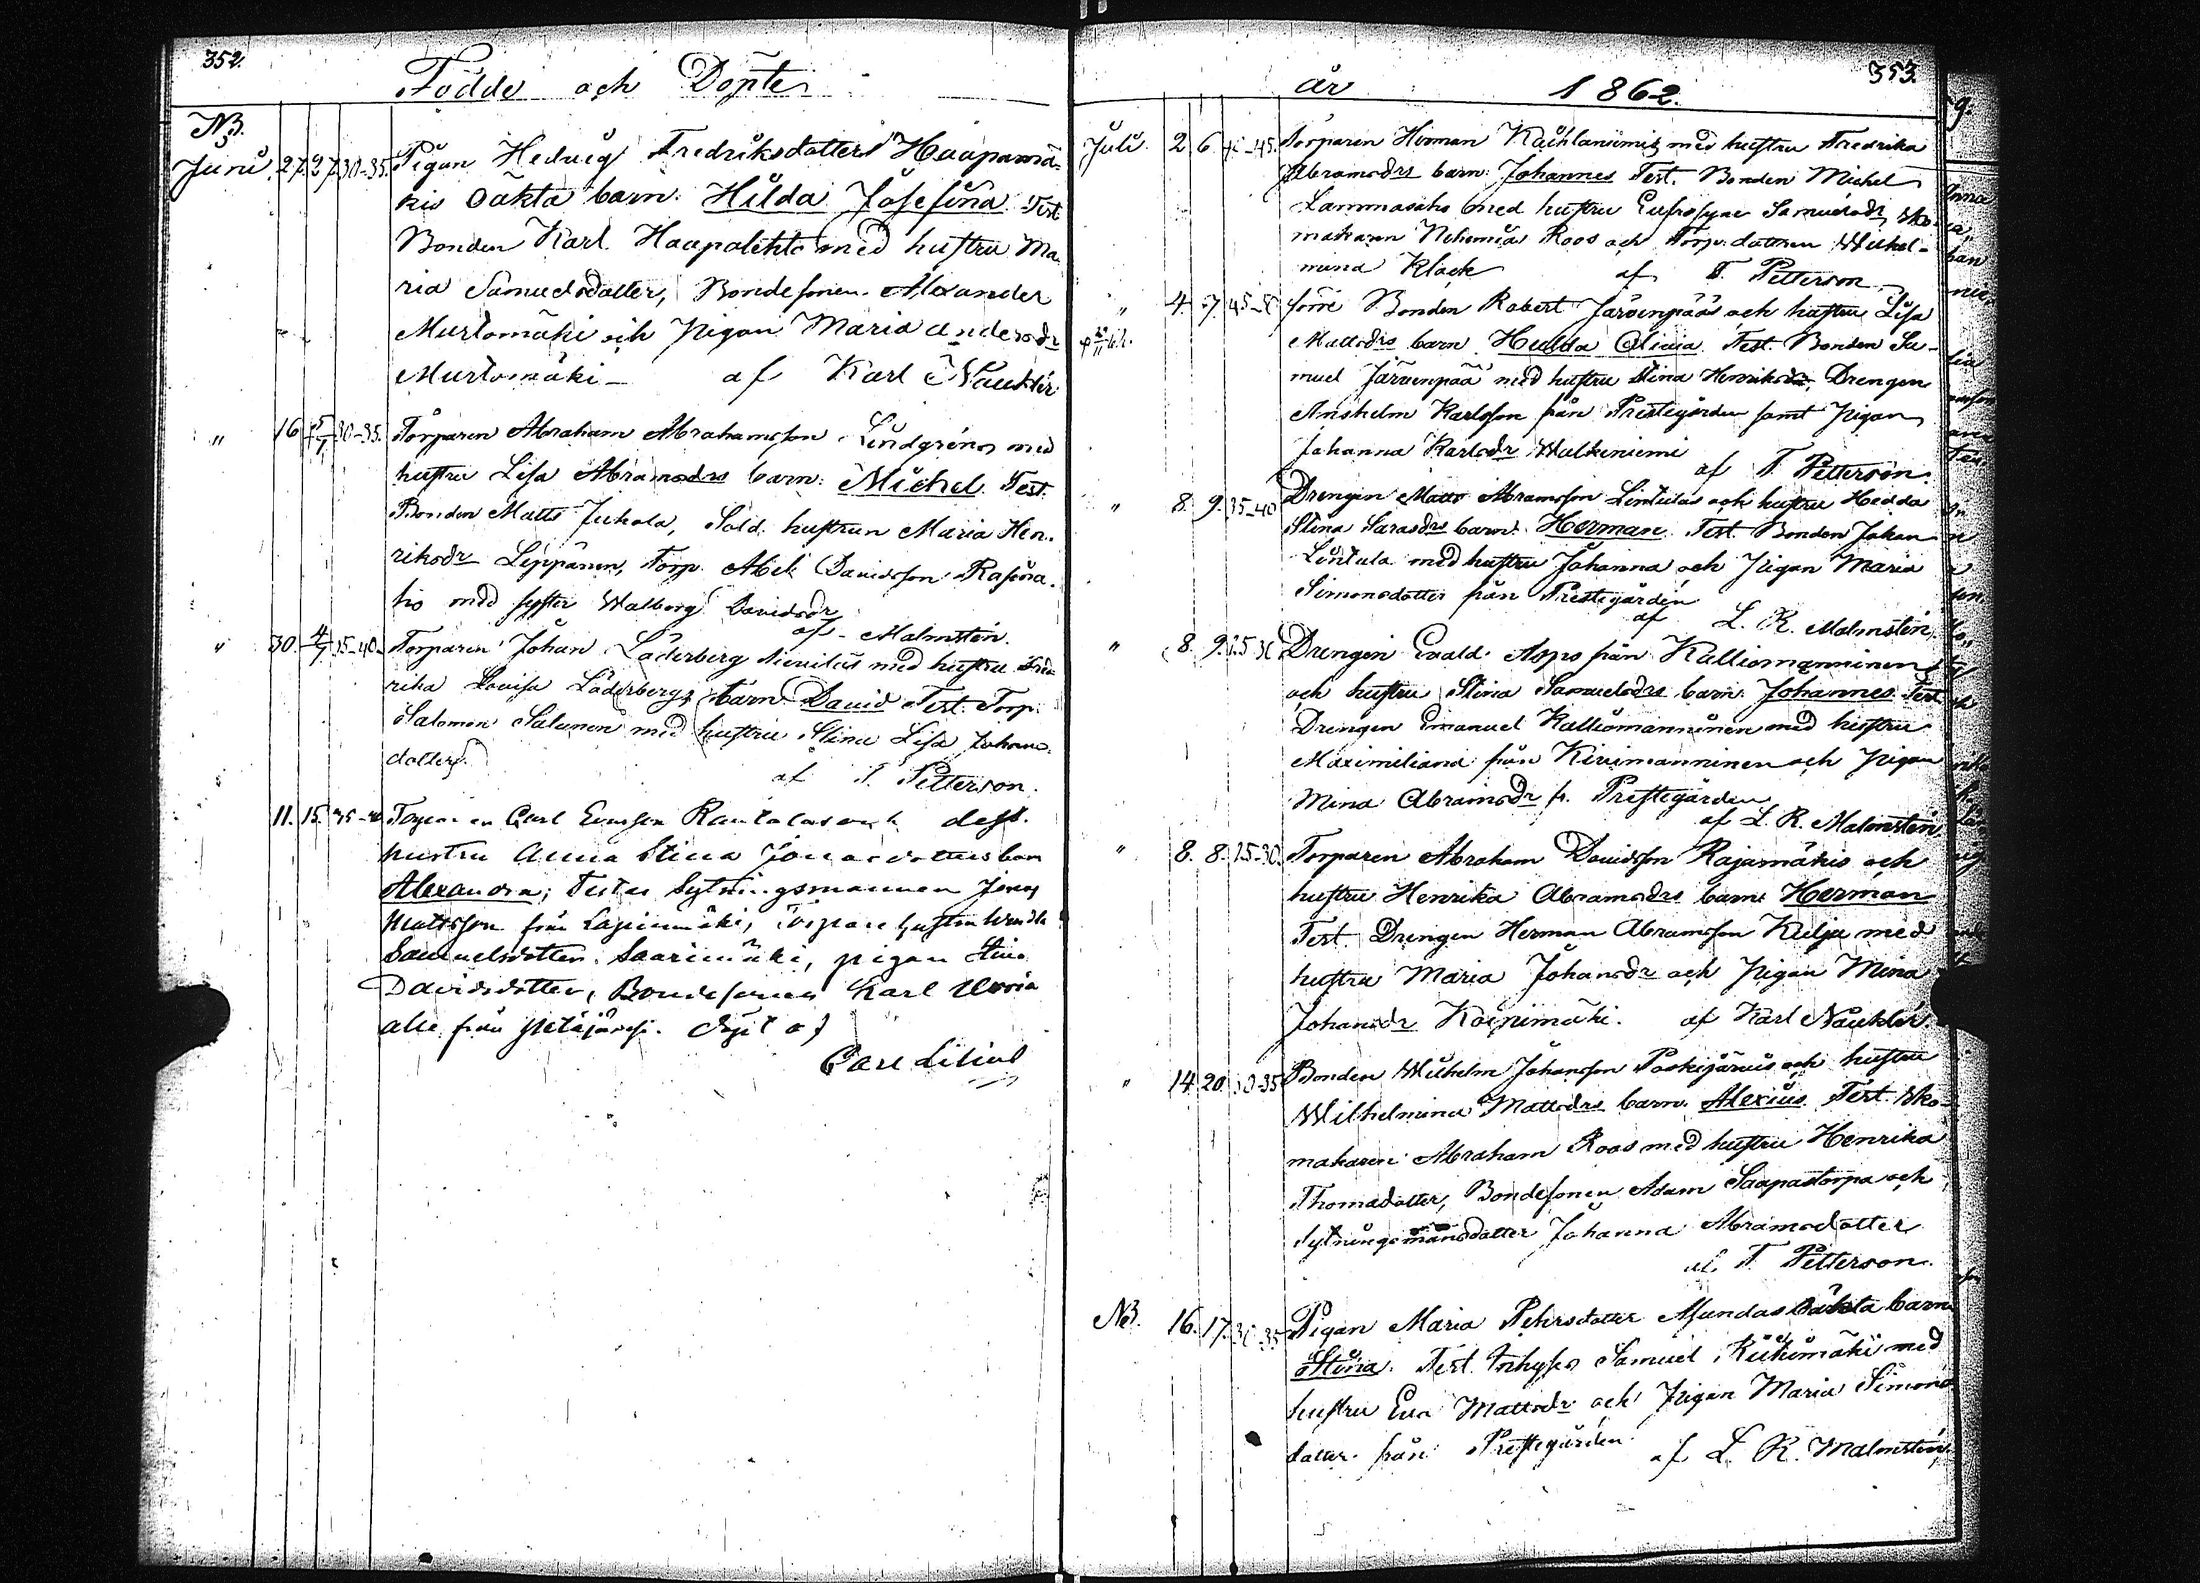 352.
Födde och Döpte
NB.
Juni 27. 27. 30-35. Pigan Hedvig Fredriksdotters Haapamä-
kis oäkta barn: Hilda Josefina Test.
Bonden Karl Haapalehto med hustru Ma
ria Samuelsdotter, Bondesonen Alexander
Murtomäki och Pigan Maria Andersdr
Murtomäki - af Karl Nauklér
" 16 30-35. Torparen Abraham Abrahamsson Lindgréns med
hustru Lisa Abramsdrs barn: Michel. Test.
Bonden Matts Juhola, Sold. hustrun Maria Hen-
riksdr Leppänen, Torp. Abel Davidsson
med syster Walborg Davidsdr
af Malmstén.
" 30. 4/7 35-40. Torparen Johan Läderberg med hustru Fred
rika Lovisa Läderbergs barn David Test. Torp.
Salomon Salonen med hustru Stina Lisa Johans-
dotter.
af T. Petterson.
11. 15. 35-40 Torparen Carl Rantalas och dess
hustru Anna Stina Jonasdotters barn
Alexandra; Testes Sytningsmannen Jonas
Mattsson från Lapinmäki, hustrun
Samuelsdotter Saarimäki, pigan Stina
Davidsdotter, Bondesonen Karl
alle från Petäjävesi. Döpt af
Carl Lilius
353.
år 1862.
Juli 2 6 40-45. Torparen Herman med hustru Fredrika
Abramsdrs barn: Johannes Test. Bonden Michel
Lammasaho med hustru Eufrosyne Samuelsdr, Sko-
makaren Nehemias Roos och Torp. dottren Wilhel-
mina Klack af T. Petterson
" 4. 7. 45-50 förre Bonden Robert Järvenpääs och hustru Lisa
Mattsdrs barn Hulda Test. Bonden Sa-
muel Järvenpää med hustru Stina Henriksdr, Drengen
Anshelm Karlsson från Prestegården samt Pigan
Johanna Karlsdr Walkeniemi
af T. Petterson.
" 8. 9. 35-40 Drengen Matts Abramsson Lintulas och hustru Hedda
Stina Sarasdrs barn: Herman Test. Bonden Johan
Lintula med hustru Johanna och Pigan Maria
Simonsdotter från Prestegården
af L. R. Malmstén.
" 8. 9. 25-30 Drengen Evald Aspo från Kalliomanninen
och hustru Stina Samuelsdrs barn: Johannes Test
Drengen Emanuel Kalliomanninen med hustru
Maximiliana från Kivimanninen och Pigan
Mina Abramsdr fr. Prestegården
af L. R. Malmstén.
" 8. 8. 25-30. Torparen Abraham Davidsson Rajamäkis och
hustru Henrika Abramsdrs barn: Herman
Test. Drengen Herman Abramsson Kilju med
hustru Maria Johansdr och Pigan Mina
Johansdr Koinimäki. af Karl Nauklér.
" 14 20. 30-35 Bonden Wilhelm Johansson Paskijärvis och hustru
Wilhelmina Mattsdrs barn: Alexius Test. Sko-
makaren Abraham Roos med hustru Henrika
Thomadotter, Bondesonen Adam Saapastorpa och
Sytningsmansdotter Johanna Abramsdotter
af T. Petterson.
NB. 16. 17. 30-35 Pigan Maria Pehrsdotter Asundas oäkta barn
Stina. Test. Inhyses Samuel Riihimäki med
hustru Eva Mattsdr och Pigan Maria Simons
dotter från Prestegården af L. R. Malmstén.